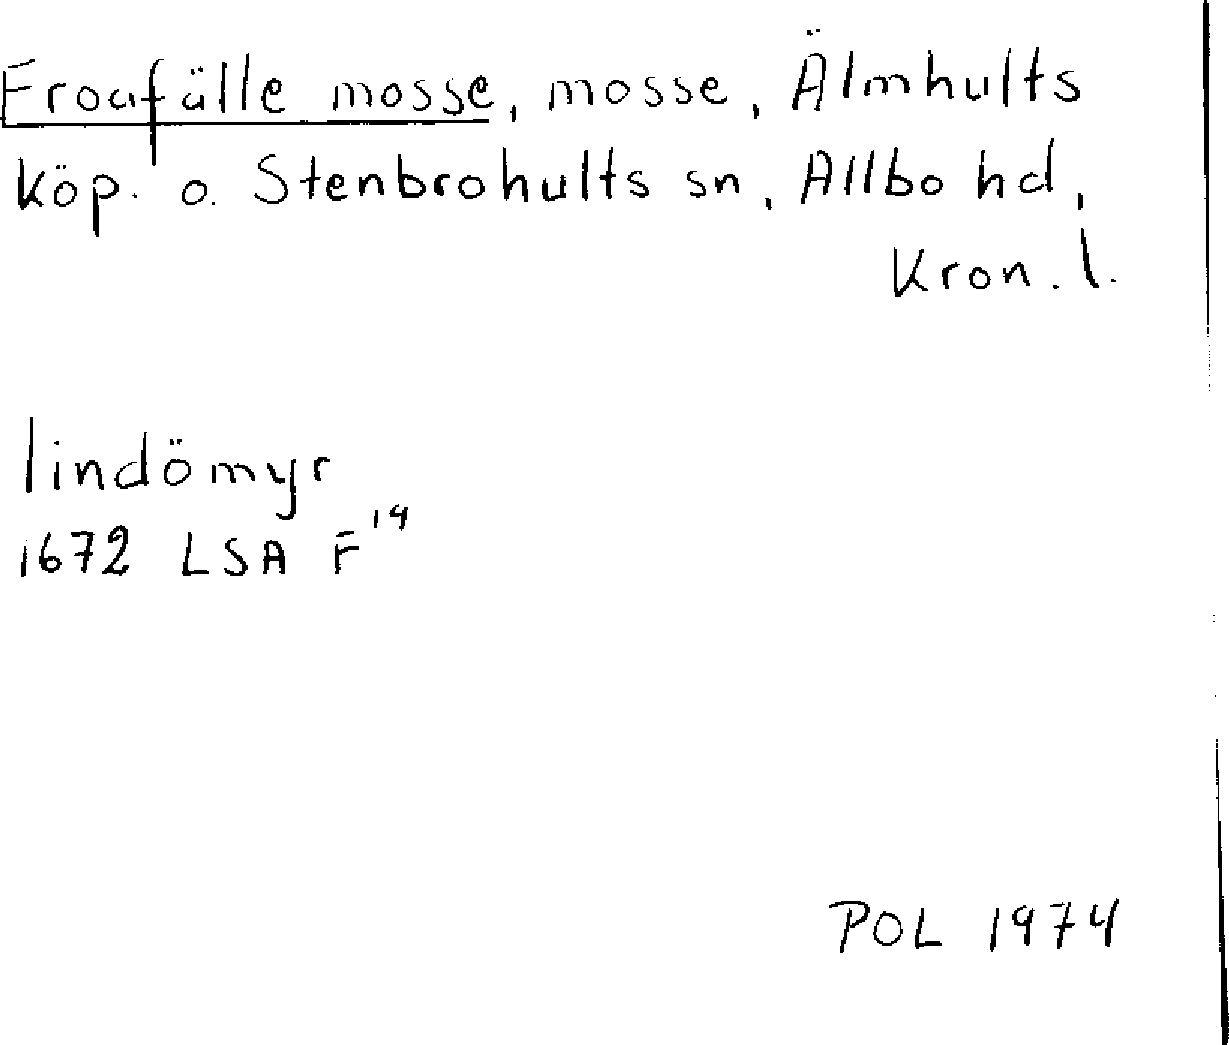 Froafälle mosse, mosse, Älmhults
köp. o. Stenbrohults sn, Allbo hd,
Kron. l.
lindömyr
1672 LSA F¹⁹
POL 1974